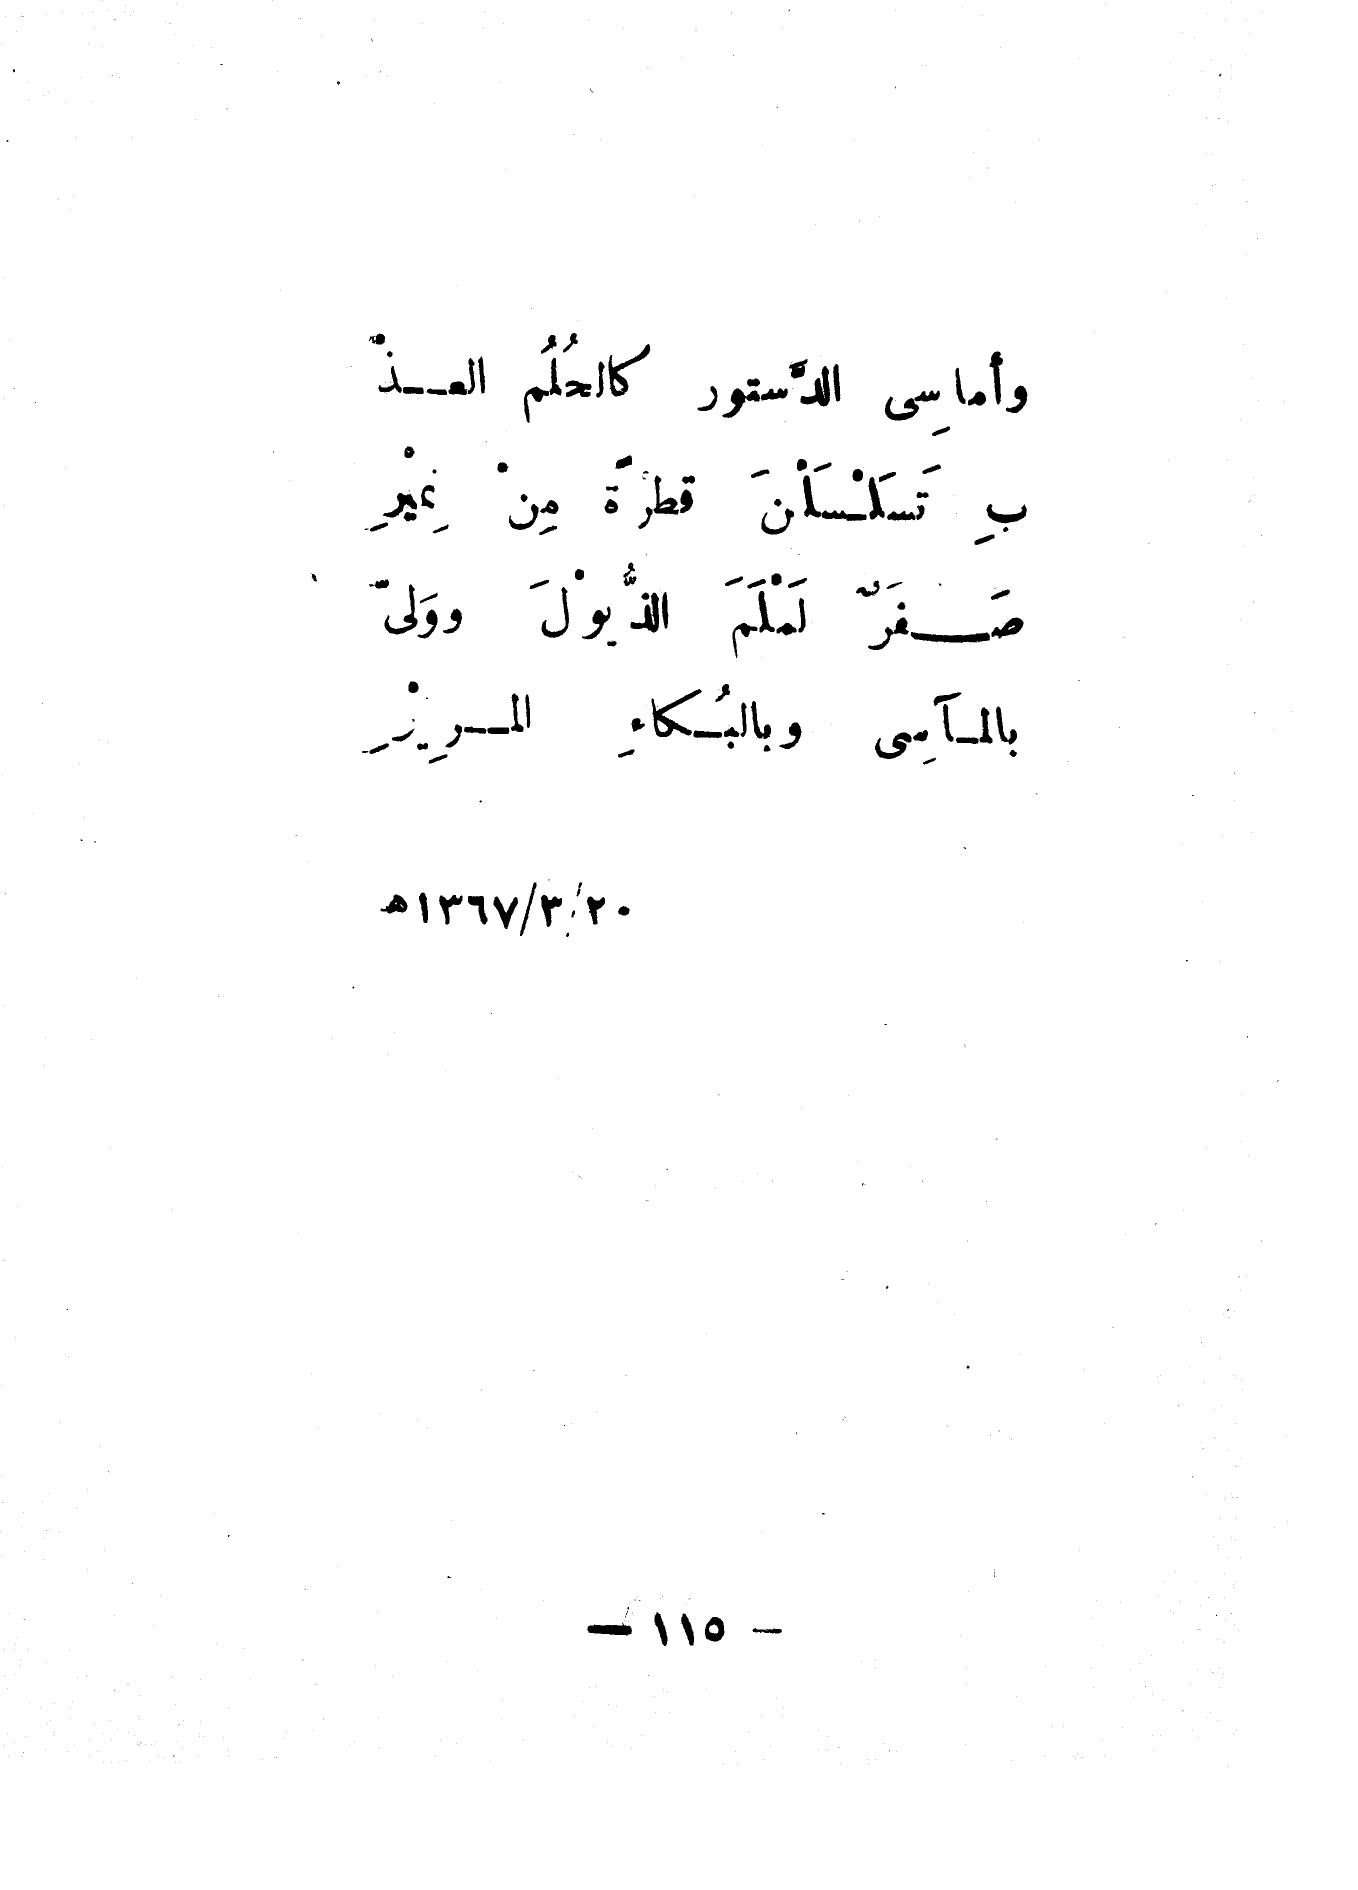 وأماسِى الدَّستور كالحُلُم العـــذْ
بِ تَسلَسْلْنَ قطرةً مِنْ نِميْرِ
صَـــفَرٌ لَمْلَمَ الذُّيوْلَ ووَلىّ
بالمـآسِى وبالبُـكاءِ المـــرِيْرِ
٢٠/٣/١٣٦٧هـ
— ١١٥ —